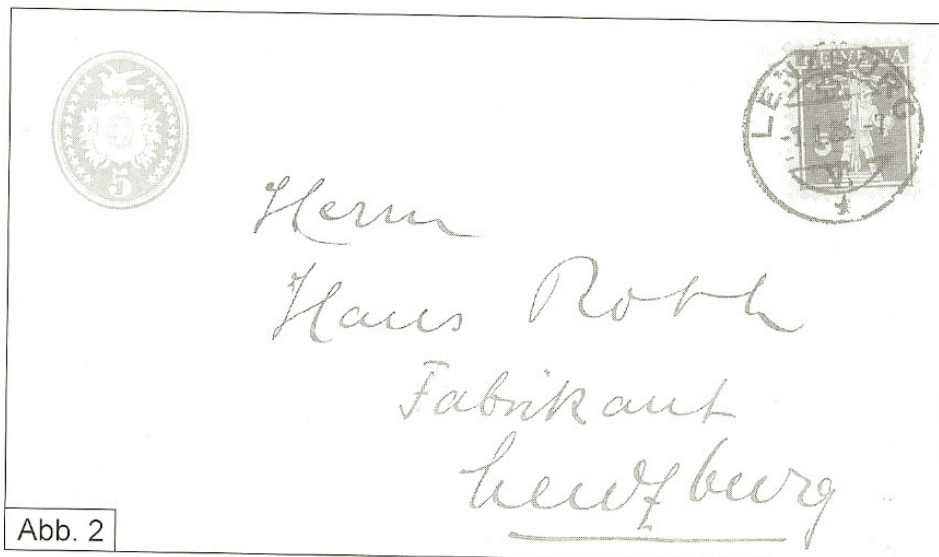 5
HELVETIA
LENZBURG
Herrn
Hans Roth
Fabrikant
Lenzburg
Abb. 2